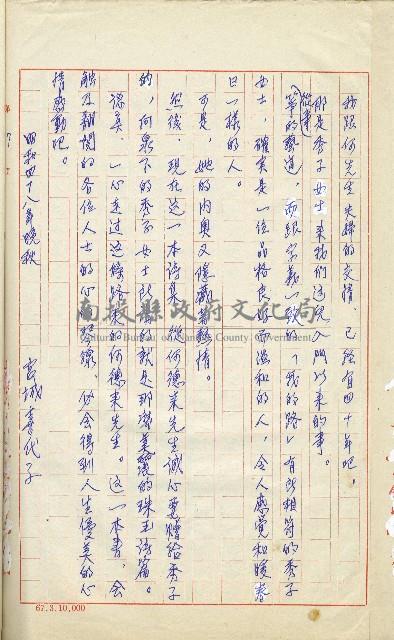 我跟何先生夫婦的交情,已經有四十年吧。
那是秀子女士來我們這兒入門以來的事。
從事
箏的藝道,而跟宗義一致的「我的路」有所相符的秀子
女士,確實是一位品格良好而溫和的人,令人感覺和暖春
日一樣的人。
可是,她的內奧又隱藏著熱情。
然後,現在這一本詩集,從何德萊先生誠心要贈給秀子
的,向泉下的秀子女士
的就是那潔美
的珠玉詩篇。
一心走過這條路來的何德來先生。這一本書,會
觸及親閱的各位人士的心琴線,必會得到人生優美的心
情感動吧。
昭和四十八年晚秋
宮城喜代子
南投縣政府文化局
Cultural Bureau of Nantou County Government
67.3.10,000